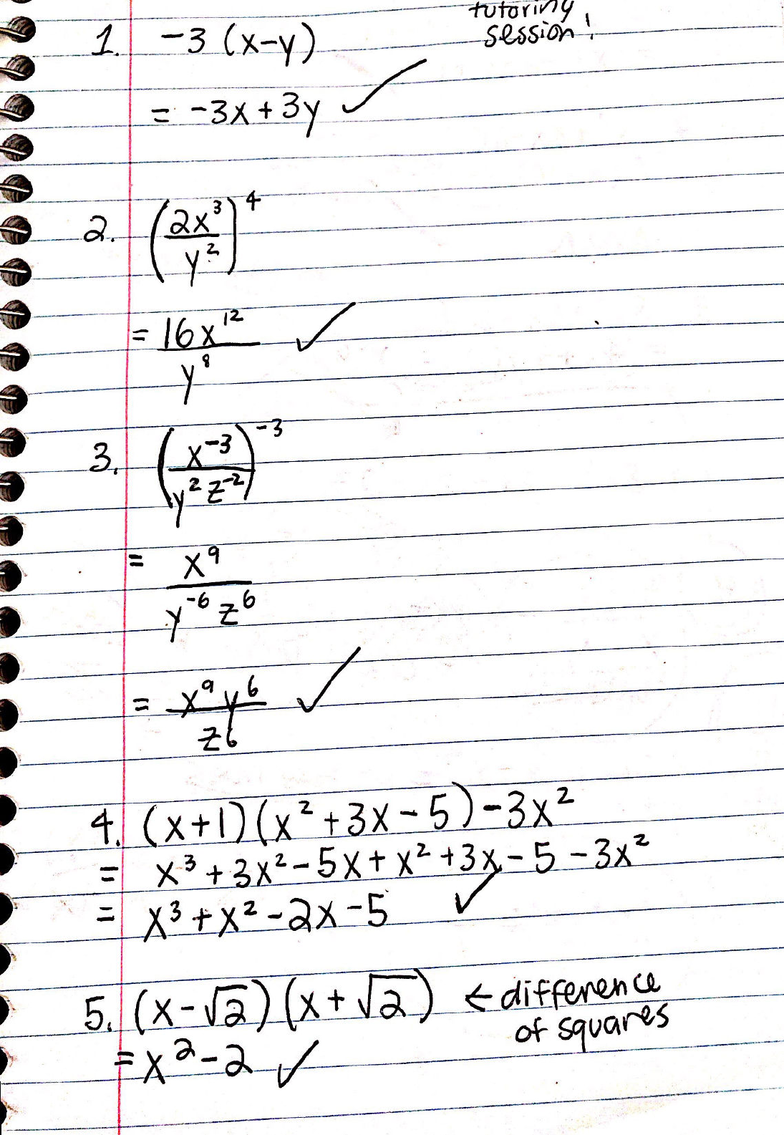 tutoring
session!
1. -3 (x-y)
= -3x + 3y ✓
2. (2x³/y²)⁴
= 16x¹²/y⁸ ✓
3. (x⁻³/y²z⁻²)⁻³
= x⁹/y⁻⁶z⁶
= x⁹y⁶/z⁶ ✓
4. (x+1)(x²+3x-5)-3x²
= x³+3x²-5x+x²+3x-5-3x²
= x³+x²-2x-5 ✓
5. (x-√2)(x+√2) ← difference
of squares
= x²-2 ✓